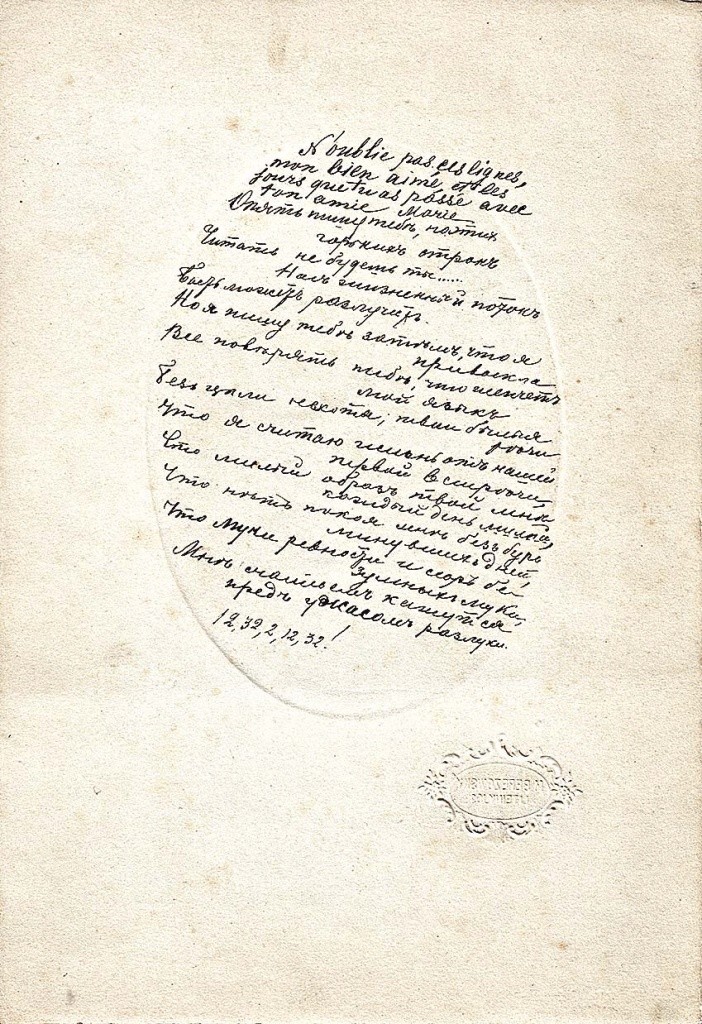 N'oublie pas ces lignes,
mon bien aimé, et les
jours que tu as passé avec
ton amie Marie
Опять пишу тебѣ, но этих
горькихъ строкъ
Читать не будешь ты......
Насъ жизненный потокъ
Быть можетъ разлучитъ.
Но я пишу тебѣ затѣмъ, что я
привыкла
Все повѣрять тебѣ, что шепчетъ
мой языкъ
Безъ цѣли нехотя, твои былыя
рѣчи
Что я считаю жизнь отъ нашей
первой встрѣчи,
Что милый образъ твой мнѣ
каждый день милѣй,
Что нѣтъ покоя мнѣ безъ бурь
минувшихъ дней,
Что муки ревности и ссоръ бе-
зумныхъ муки,
Мнѣ счастьемъ кажутся
предъ ужасомъ разлуки.
12,32,2,12,32!